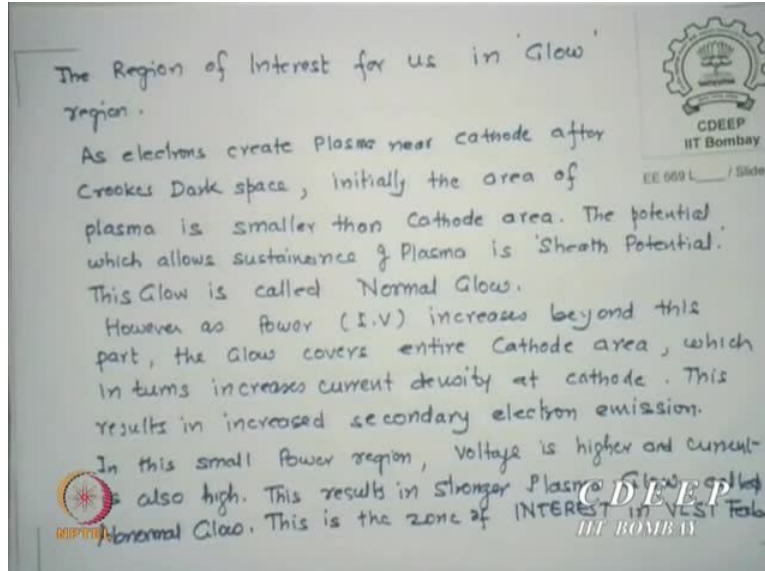 The Region of Interest for us in 'Glow'
region.
As electrons create Plasma near cathode after
Crookes Dark space, initially the area of
plasma is smaller than Cathode area. The potential
which allows sustainance of Plasma is 'Sheath Potential'.
This Glow is called Normal Glow.
However as Power (I.V) increases beyond this
part, the Glow covers entire Cathode area, which
in turns increases current density at cathode. This
results in increased secondary electron emission.
In this small Power region, Voltage is higher and current
is also high. This results in stronger Plasma Glow called
Abnormal Glow. This is the zone of INTEREST in VLSI Fab
CDEEP
IIT Bombay
EE 669 L____ / Slide
NPTEL
CDEEP
IIT BOMBAY